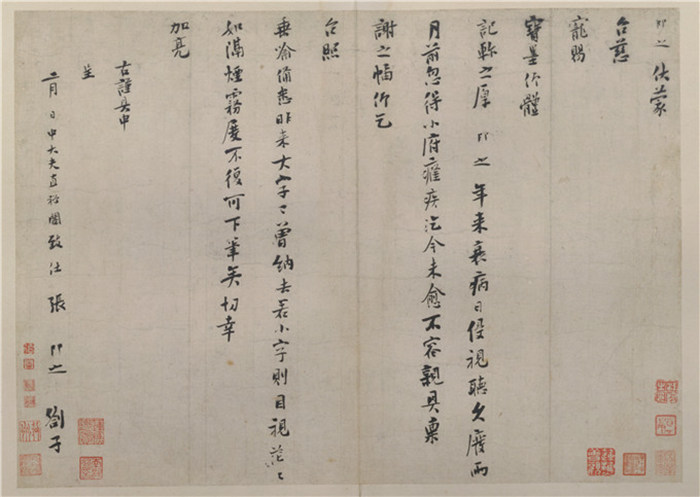 即之 伏蒙
台慈
寵賜
寶墨仰體
記軫之厚 即之 年來衰病日侵視聽久廢兩
月前忽得小府癃疾迄今未愈不容親具稟
謝之幅仰乞
台照
垂喻備悉昨來大字〻曾納去若小字則目視茫〻
如滿煙霧屢不復可下筆矣切幸
加亮
右謹具申
呈
二月 日中大夫直秘閣致仕張 即之 劄子